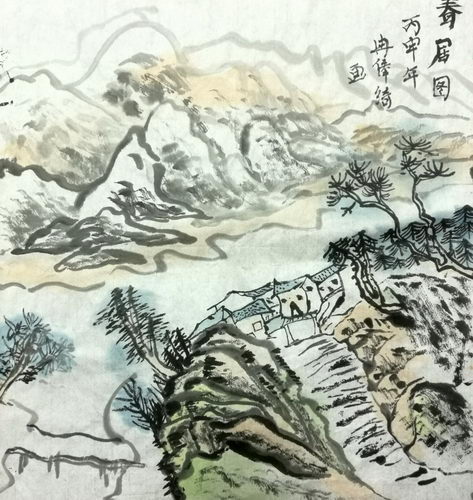 春居图
丙申年
冉伟绮
画